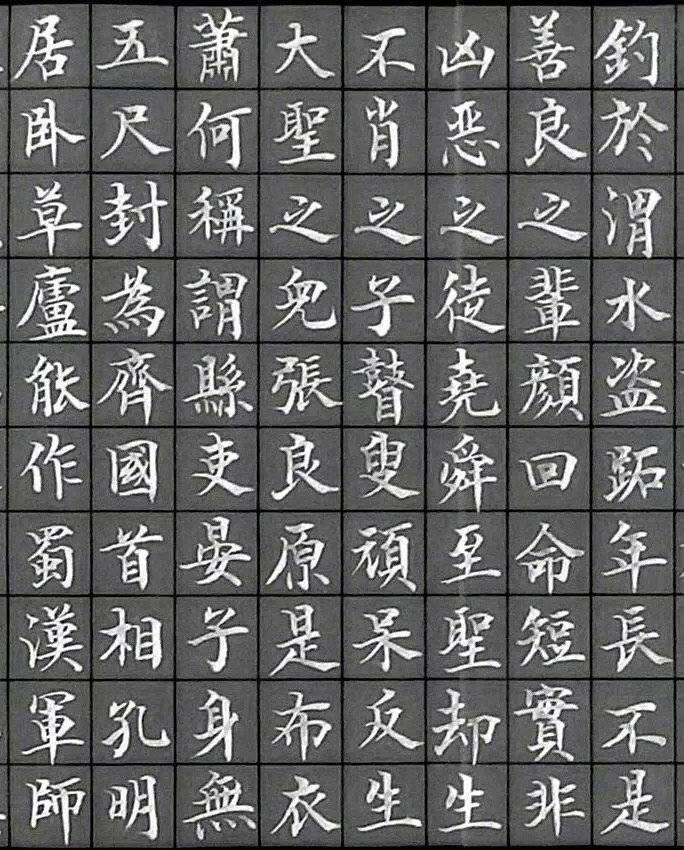 釣於渭水盗跖年長不是
善良之輩顔回命短實非
凶恶之徒堯舜至聖却生
不肖之子瞽叟頑呆反生
大聖之兒張良原是布衣
蕭何稱謂縣吏晏子身無
五尺封為齊國首相孔明
居卧草廬能作蜀漢軍師